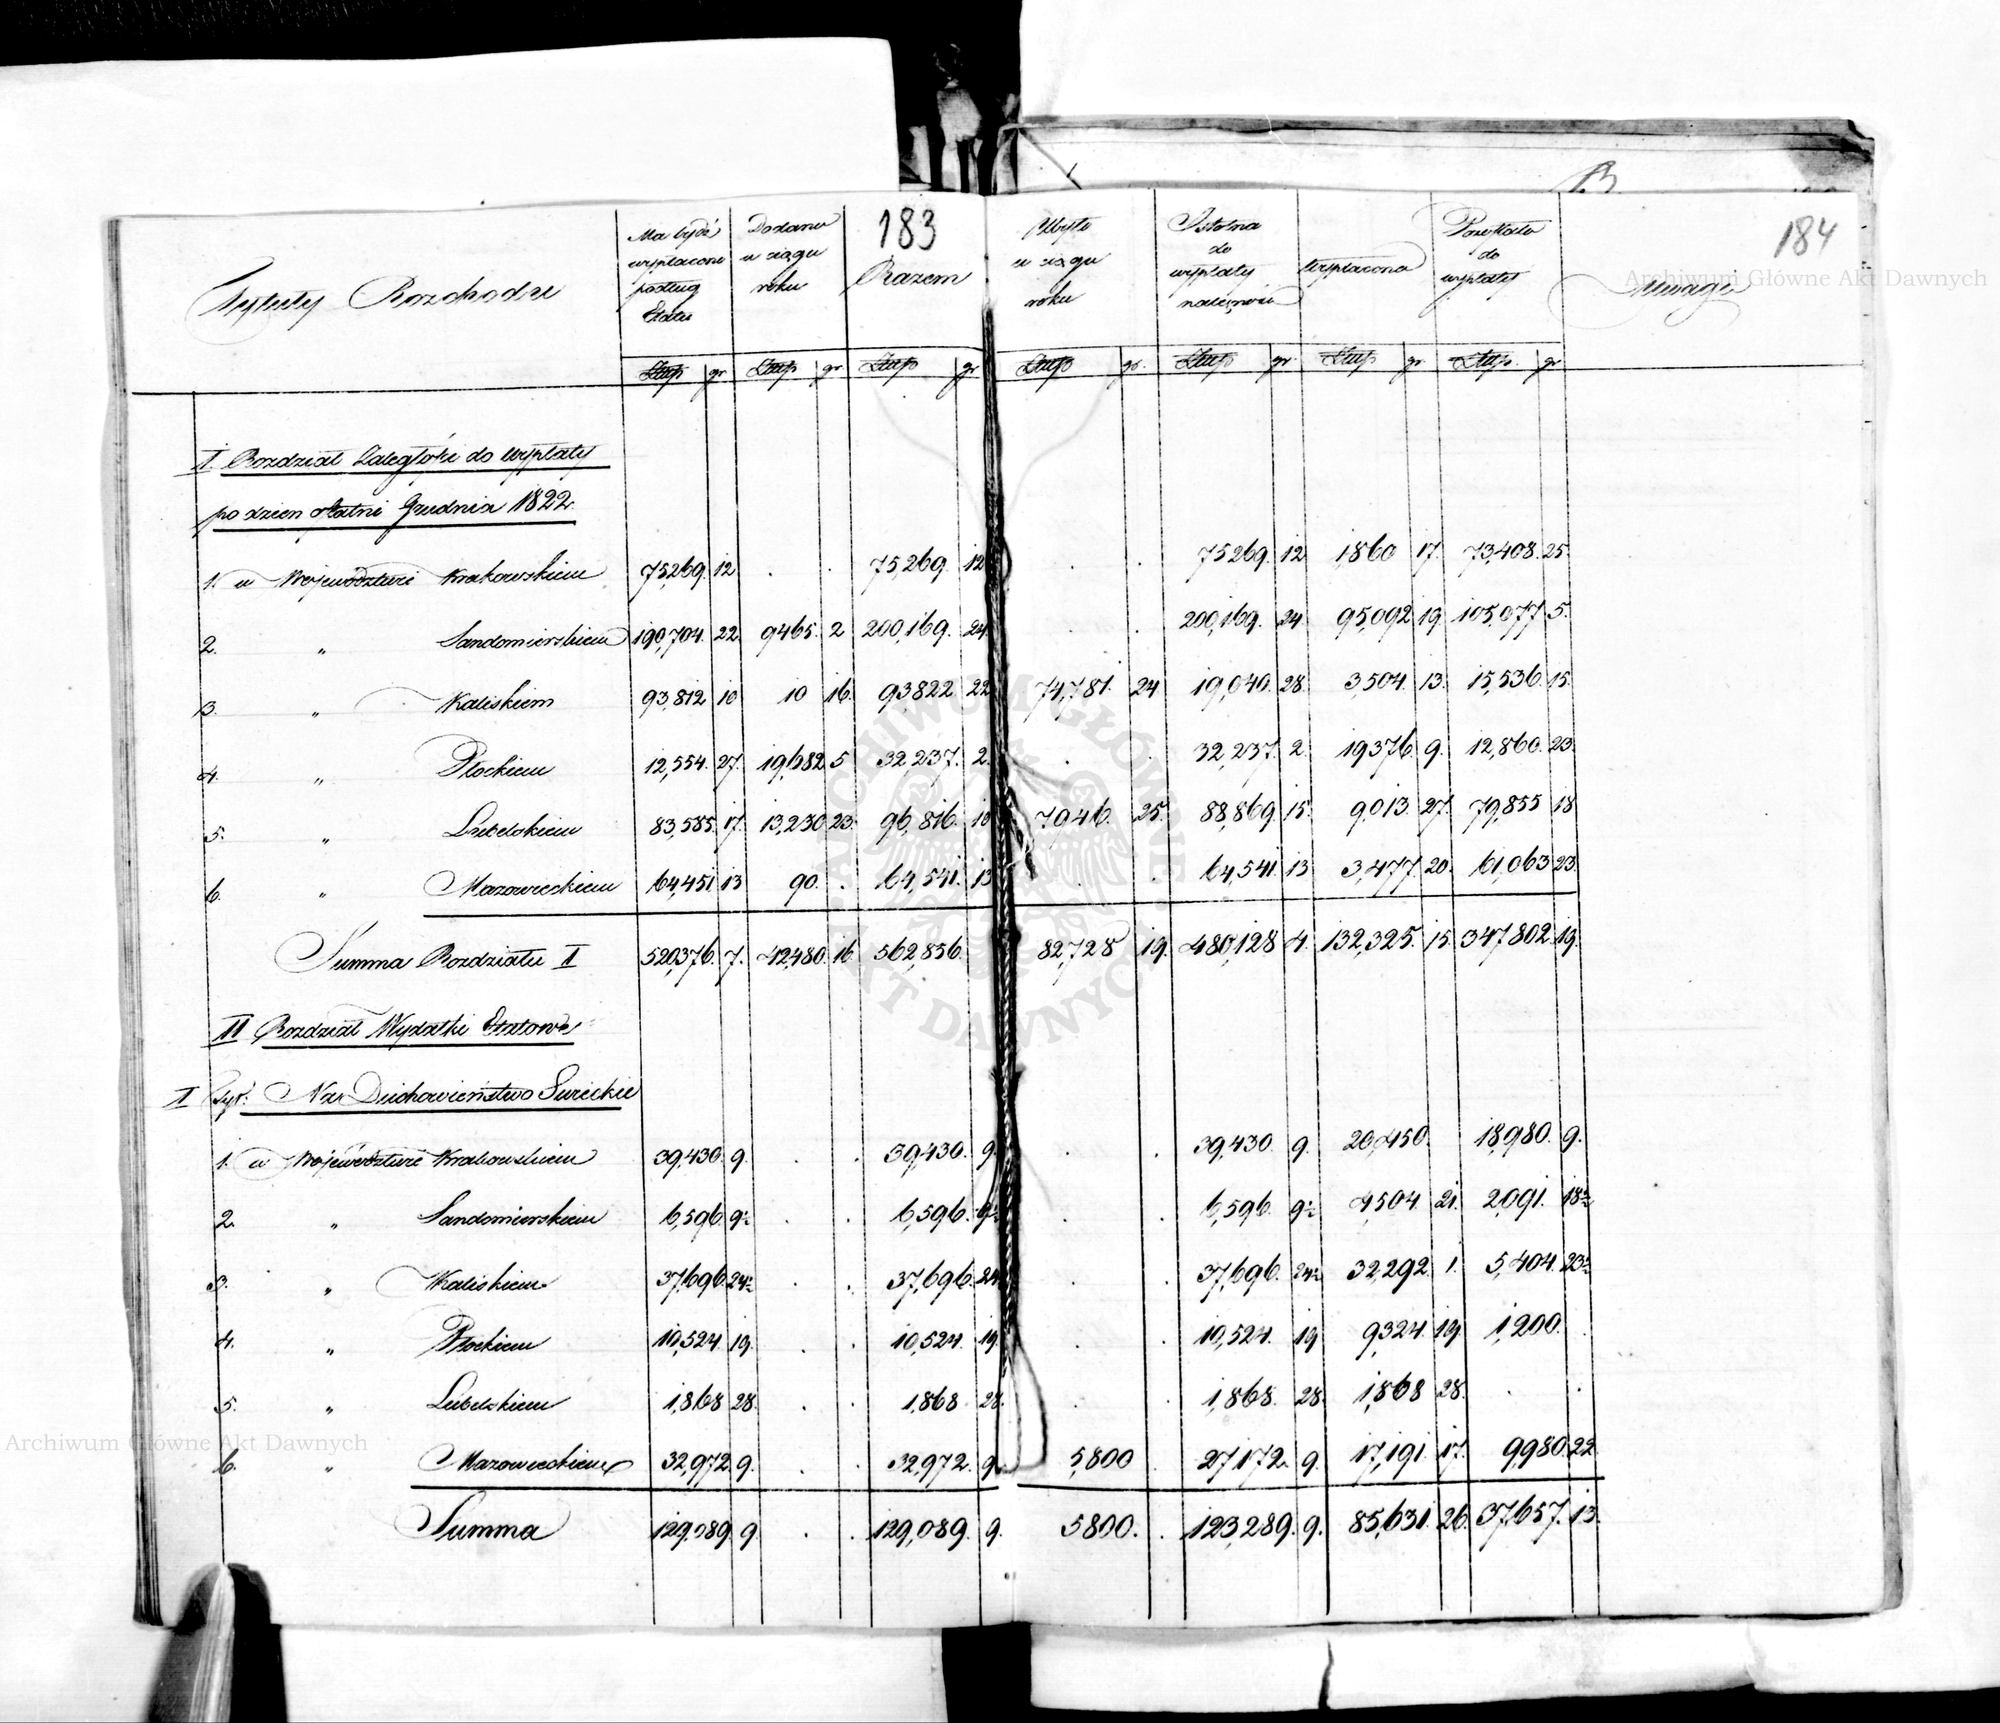 183
184
Tytuły Rozchodu | Ma bydź wypłacone podług Etatu | Dodano w ciągu roku | Razem | Ubyło w ciągu roku | Istotna do wypłaty należność | Wypłacono | Pozostało do wypłaty | Uwagi
Złłp | gr | Złłp | gr | Złłp | gr | Złłp | gr. | Złłp | gr. | Złłp | gr. | Złłp. | gr
I Rozdział Zaległości do wypłaty
po dzień ostatni Grudnia 1822.
1. w Województwie Krakowskiem | 75,269. | 12 | . | . | 75,269. | 12 | . | . | 75269. | 12 | 1860 | 17. | 73,408. | 25.
2. " Sandomierskiem | 190,704. | 22 | 9465. | 2 | 200,169. | 24 | . | . | 200,169. | 24 | 95,092 | 19. | 105,077 | 5.
3. " Kaliskiem | 93,812 | 10 | 10 | 16. | 93,822 | 22 | 74,781. | 24 | 19,040. | 28. | 3,504. | 13. | 15,536. | 15.
4. " Płockiem | 12,554. | 27. | 19,682 | 5 | 32,237. | 2. | . | . | 32,237. | 2. | 19376. | 9. | 12,860. | 23.
5. " Lubelskiem | 83,585. | 17. | 13,230 | 23. | 96,816. | 10 | 7946. | 25. | 88,869. | 15. | 9,013. | 27. | 79,855 | 18
6. " Mazowieckiem | 64,451 | 13 | 90. | . | 64,541. | 13 | . | . | 64,541. | 13 | 3,477. | 20. | 61,063 | 23.
Summa Rozdziału I | 520,376. | 7. | 42,480. | 16. | 562,856. | 82,728 | 19. | 480,128 | 4. | 132,325. | 15 | 347,802. | 19.
II Rozdział Wydatki Etatowe
I Tyt: Na Duchowieństwo Świeckie
1. w Województwie Krakowskiem | 39,430. | 9. | . | . | 39,430. | 9. | . | . | 39,430 | 9. | 20,450. | 18,980. | 9.
2. " Sandomierskiem | 6,596. | 9½ | . | . | 6,596. | 9½ | . | . | 6,596. | 9½ | 4,504. | 21. | 2,091. | 18½
3. " Kaliskiem | 37,696. | 24½ | . | . | 37,696. | 24 | . | . | 37,696. | 24½ | 32,292 | 1. | 5,404. | 23½
4. " Płockiem | 10,524. | 19. | . | . | 10,524. | 19. | . | . | 10,524. | 19 | 9,324. | 19. | 1,200. | .
5. " Lubelskiem | 1,868 | 28. | . | . | 1,868. | 28. | . | . | 1,868. | 28. | 1,868 | 28. | . | .
6. " Mazowieckiem | 32,972. | 9. | . | . | 32,972. | 9. | 5,800 | . | 27,172. | 9. | 17,191. | 17. | 9,980. | 22.
Summa | 129,089. | 9. | . | . | 129,089. | 9. | 5800. | . | 123,289. | 9. | 85,631. | 26. | 37,657. | 13.
Archiwum Główne Akt Dawnych
Archiwum Główne Akt Dawnych
ARCHIWUM GŁÓWNE AKT DAWNYCH